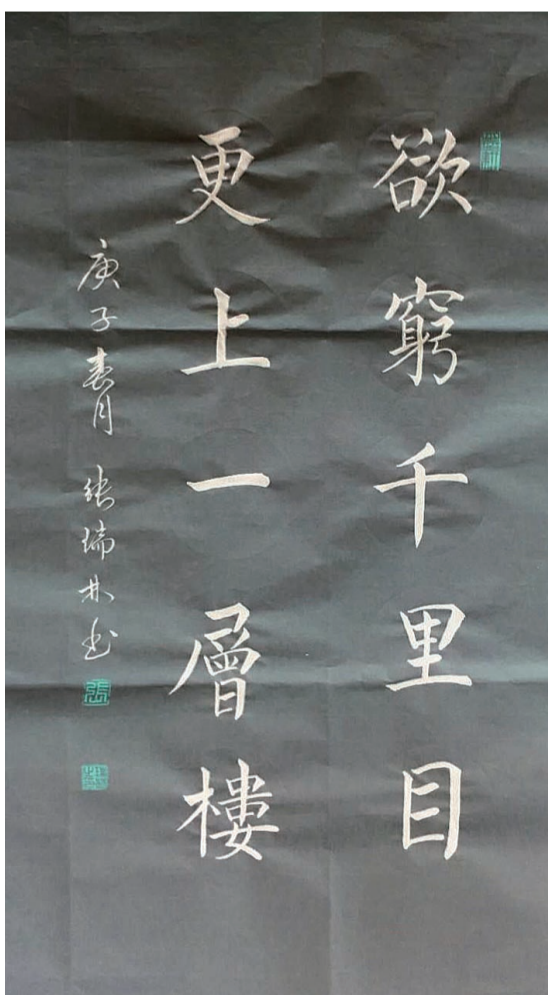 欲窮千里目
更上一層樓
庚子春月 張瑞林書